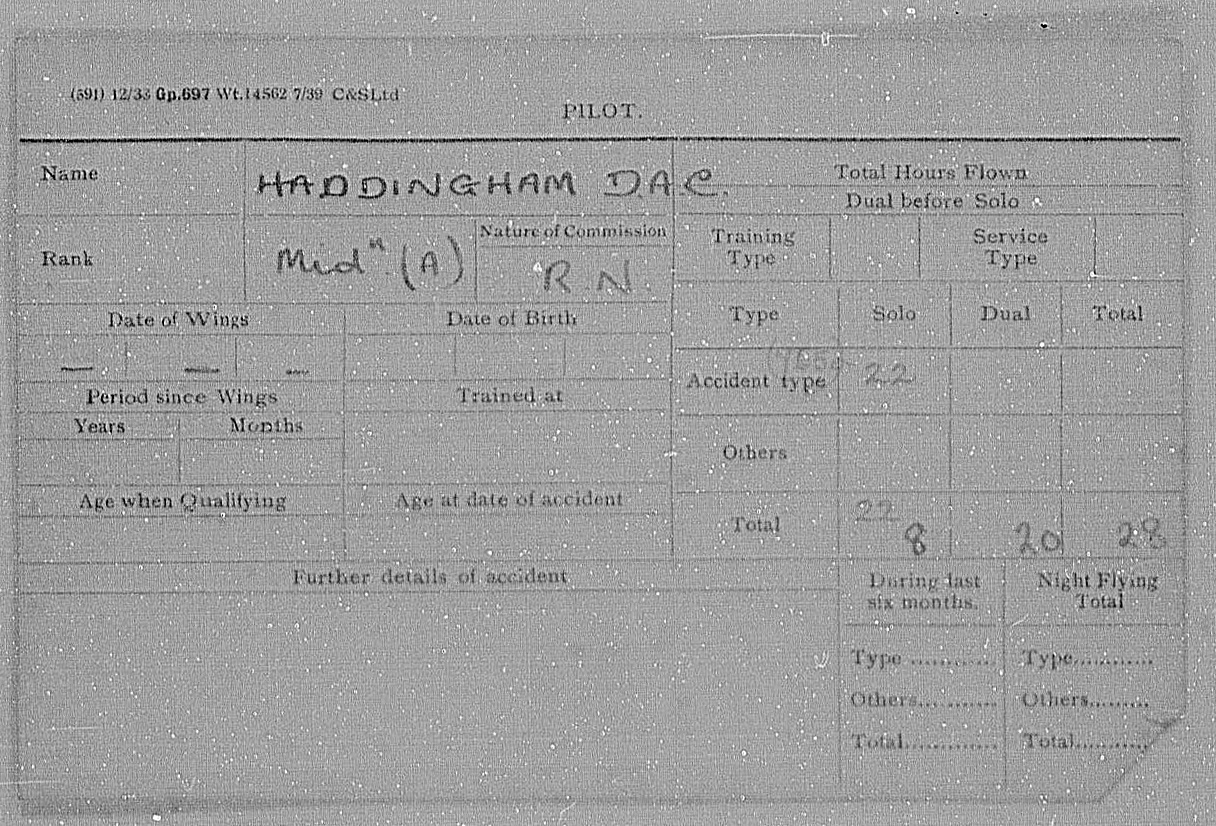 (591) 12/33 Gp.697 Wt.14562 7/39 C&S Ltd
PILOT.
Name HADDINGHAM D.A.C.
Total Hours Flown
Dual before Solo
Rank Midn (A)
Nature of Commission
R N
Training Type
Service Type
Date of Wings
Date of Birth
Type Solo Dual Total
— — —
Accident type 22
Period since Wings
Trained at
Years Months
Others
Age when Qualifying
Age at date of accident
Total 22 8 20 28
Further details of accident
During last six months.
Night Flying Total
Type ............ Type............
Others............ Others.........
Total............. Total...........